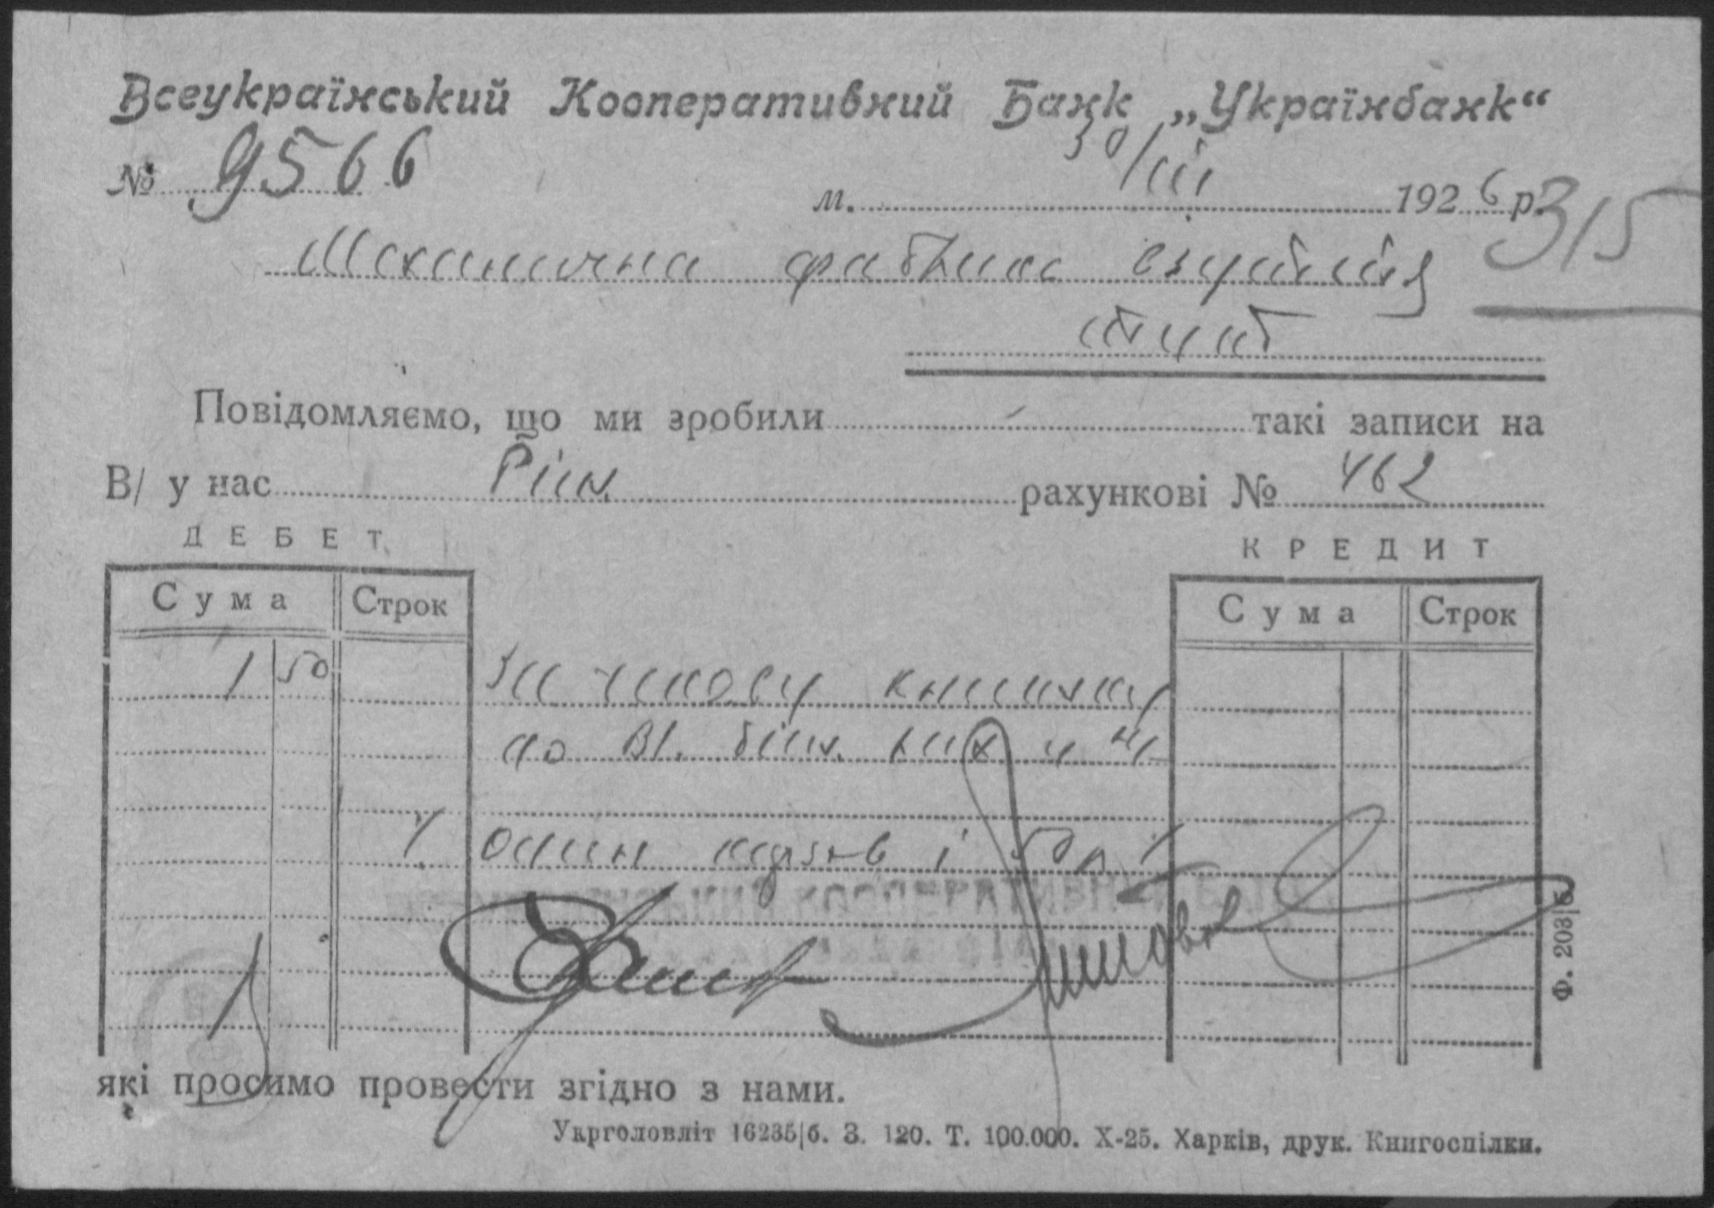 Всеукраїнський Кооперативний Банк „Українбанк“
№ 9566
м. 30/III 1926 р. 315
Механична фабрика
Повідомляємо, що ми зробили такі записи на
В/ у нас рахункові № 462
ДЕБЕТ КРЕДИТ
Сума Строк Сума Строк
1 50 За чекову книжку
до
один карб і 50 к
КООПЕРАТИВН
які просимо провести згідно з нами.
Укрголовліт 16235|б. З. 120. Т. 100.000. X-25. Харків, друк. Книгоспілки.
Ф. 203|б.